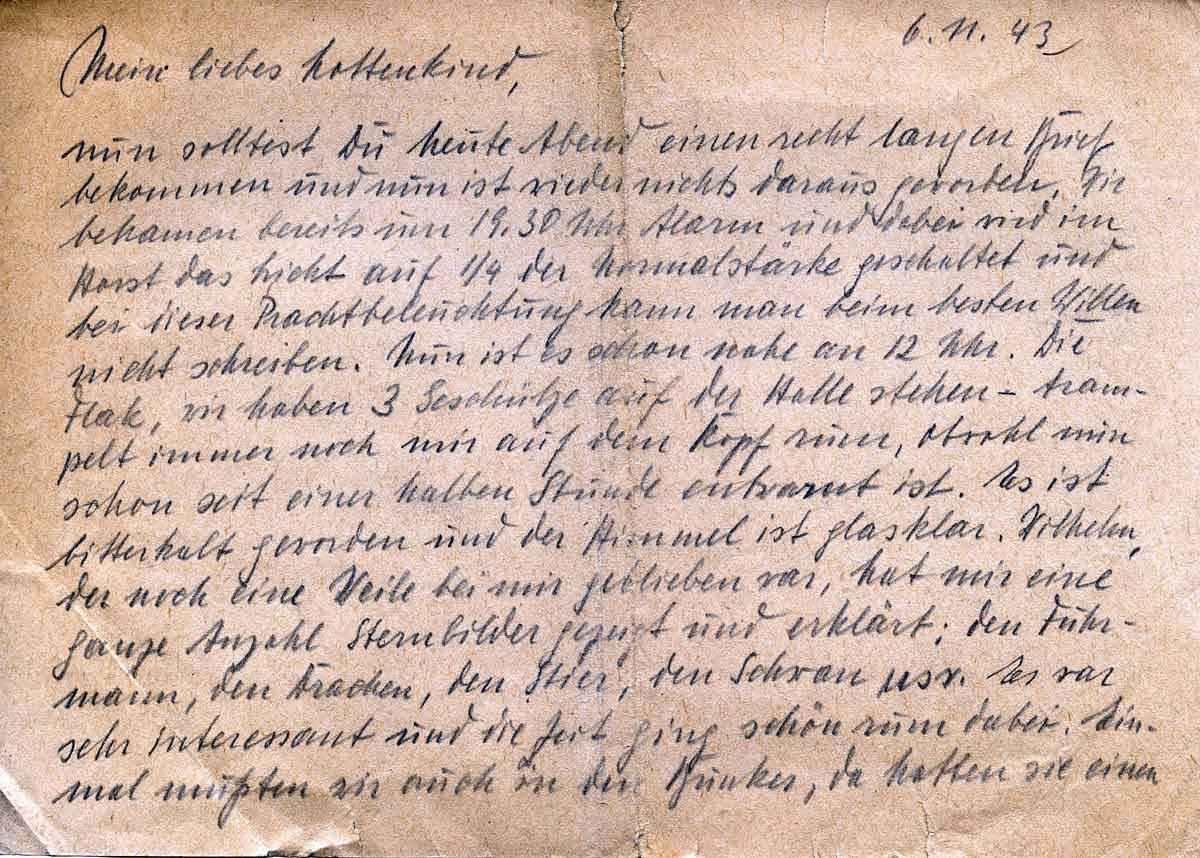 6. 11. 43
Mein liebes Lottenkind,
nun solltest Du heute Abend einen recht langen Brief
bekommen und nun ist wieder nichts daraus geworden. Wir
bekamen bereits um 19.30 Uhr Alarm und dabei wird im
Horst das Licht auf 1/4 der Normalstärke geschaltet und
bei dieser Prachtbeleuchtung kann man beim besten Willen
nicht schreiben. Nun ist es schon nahe an 12 Uhr. Die
Flak, wir haben 3 Geschütze auf der Halle stehen - tram-
pelt immer noch mir auf dem Kopf rum, obwohl nun
schon seit einer halben Stunde entwarnt ist. Es ist
bitterkalt geworden und der Himmel ist glasklar. Wilhelm,
der noch eine Weile bei mir geblieben war, hat mir eine
ganze Anzahl Sternbilder gezeigt und erklärt; den Fuhr-
mann, den Drachen, den Stier, den Schwan usw. Es war
sehr interessant und die Zeit ging schön rum dabei. Ein-
mal mußten wir auch in den Bunker, da hatten sie einen